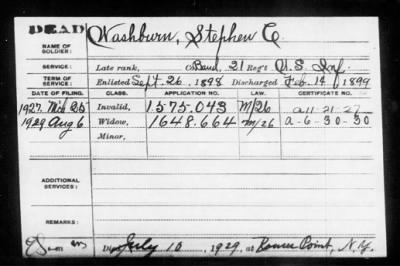 DEAD
NAME OF SOLDIER: Washburn, Stephen E.
SERVICE: Late rank, Co. Band, 21 Reg't U.S. Inf.
TERM OF SERVICE: Enlisted Sept. 26, 1898 Discharged Feb. 14, 1899
DATE OF FILING. CLASS. APPLICATION NO. LAW. CERTIFICATE NO.
1927 Mch 25 Invalid, 1.575.043 M/26 a 11-21-27
1929 Aug 6 Widow, 1648.664 M/26 a-6-30-30
Minor,
ADDITIONAL SERVICES:
REMARKS:
Died July 10, 1929, at Rouses Point, N.Y.